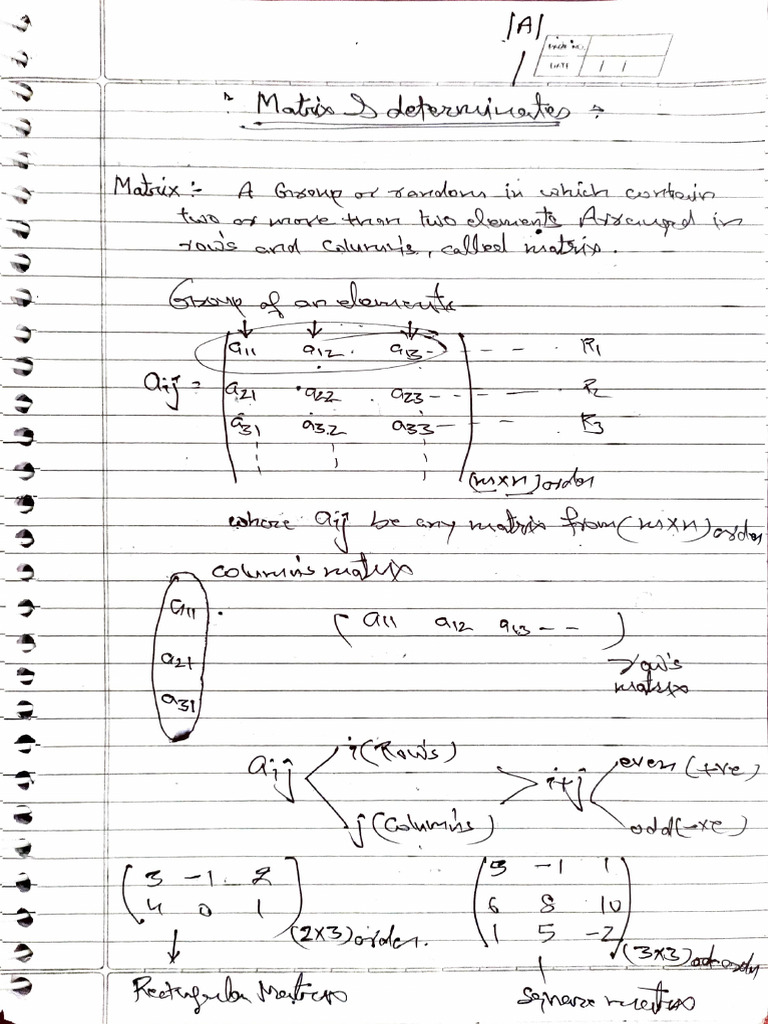 |A|
PAGE NO.
DATE
: Matrix & determinates :
Matrix :- A Group or random in which contain
two or more than two elements Arranged in
row's and column's, called matrix.
Group of an elements
aij =
a11 a12 a13 - - - R1
a21 a22 a23 - - - R2
a31 a32 a33 - - - R3
(m×n) order
where aij be any matrix from (m×n) order
column's matrix
a11
a21
a31
( a11 a12 a13 - - )
row's
matrix
aij
i (Row's)
j (Column's)
i+j
even (+ve)
odd (-ve)
3 -1 2
4 0 1
(2×3) order.
Rectangular Matrix
5 -1 1
6 8 10
1 5 -2
(3×3) order
Square matrix